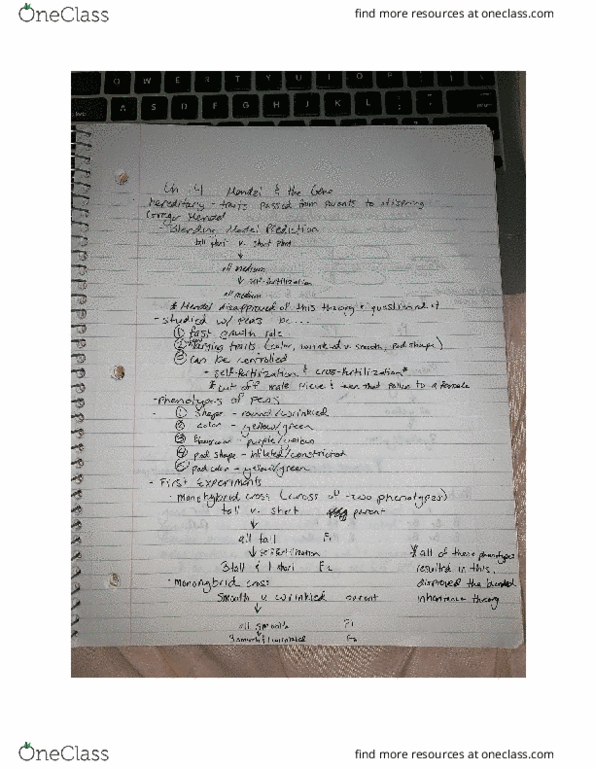 OneClass
find more resources at oneclass.com
Q W E R T Y U I O P
A S D F G H J K L
Ch 4 Mendel & the Gene
Hereditary - traits passed from parents to offspring
Gregor Mendel
- Blending Model Prediction
tall plant v. short plant
all medium
self-fertilization
all medium
* Mendel disapproved of this theory & questioned it
- studied w/ peas bc...
① fast growth rate
② varying traits (color, wrinkled v. smooth, pod shape)
③ can be controlled
- self-fertilization & cross-fertilization*
* cut off male piece & then that pollen to a female
- phenotypes of peas
① shape - round/wrinkled
② color - yellow/green
③ purple/
④ pod shape - inflated/constricted
⑤ pod color - yellow/green
- First Experiments
· monohybrid cross (cross of two phenotypes)
tall v. short parent
all tall F1
self-fertilization
3 tall & 1 short F2
· monohybrid cross
smooth v wrinkled parent
all smooth F1
3 smooth/1 wrinkled F2
* all of these phenotypes
resulted in this,
disproved the blended
inheritance theory
OneClass
find more resources at oneclass.com